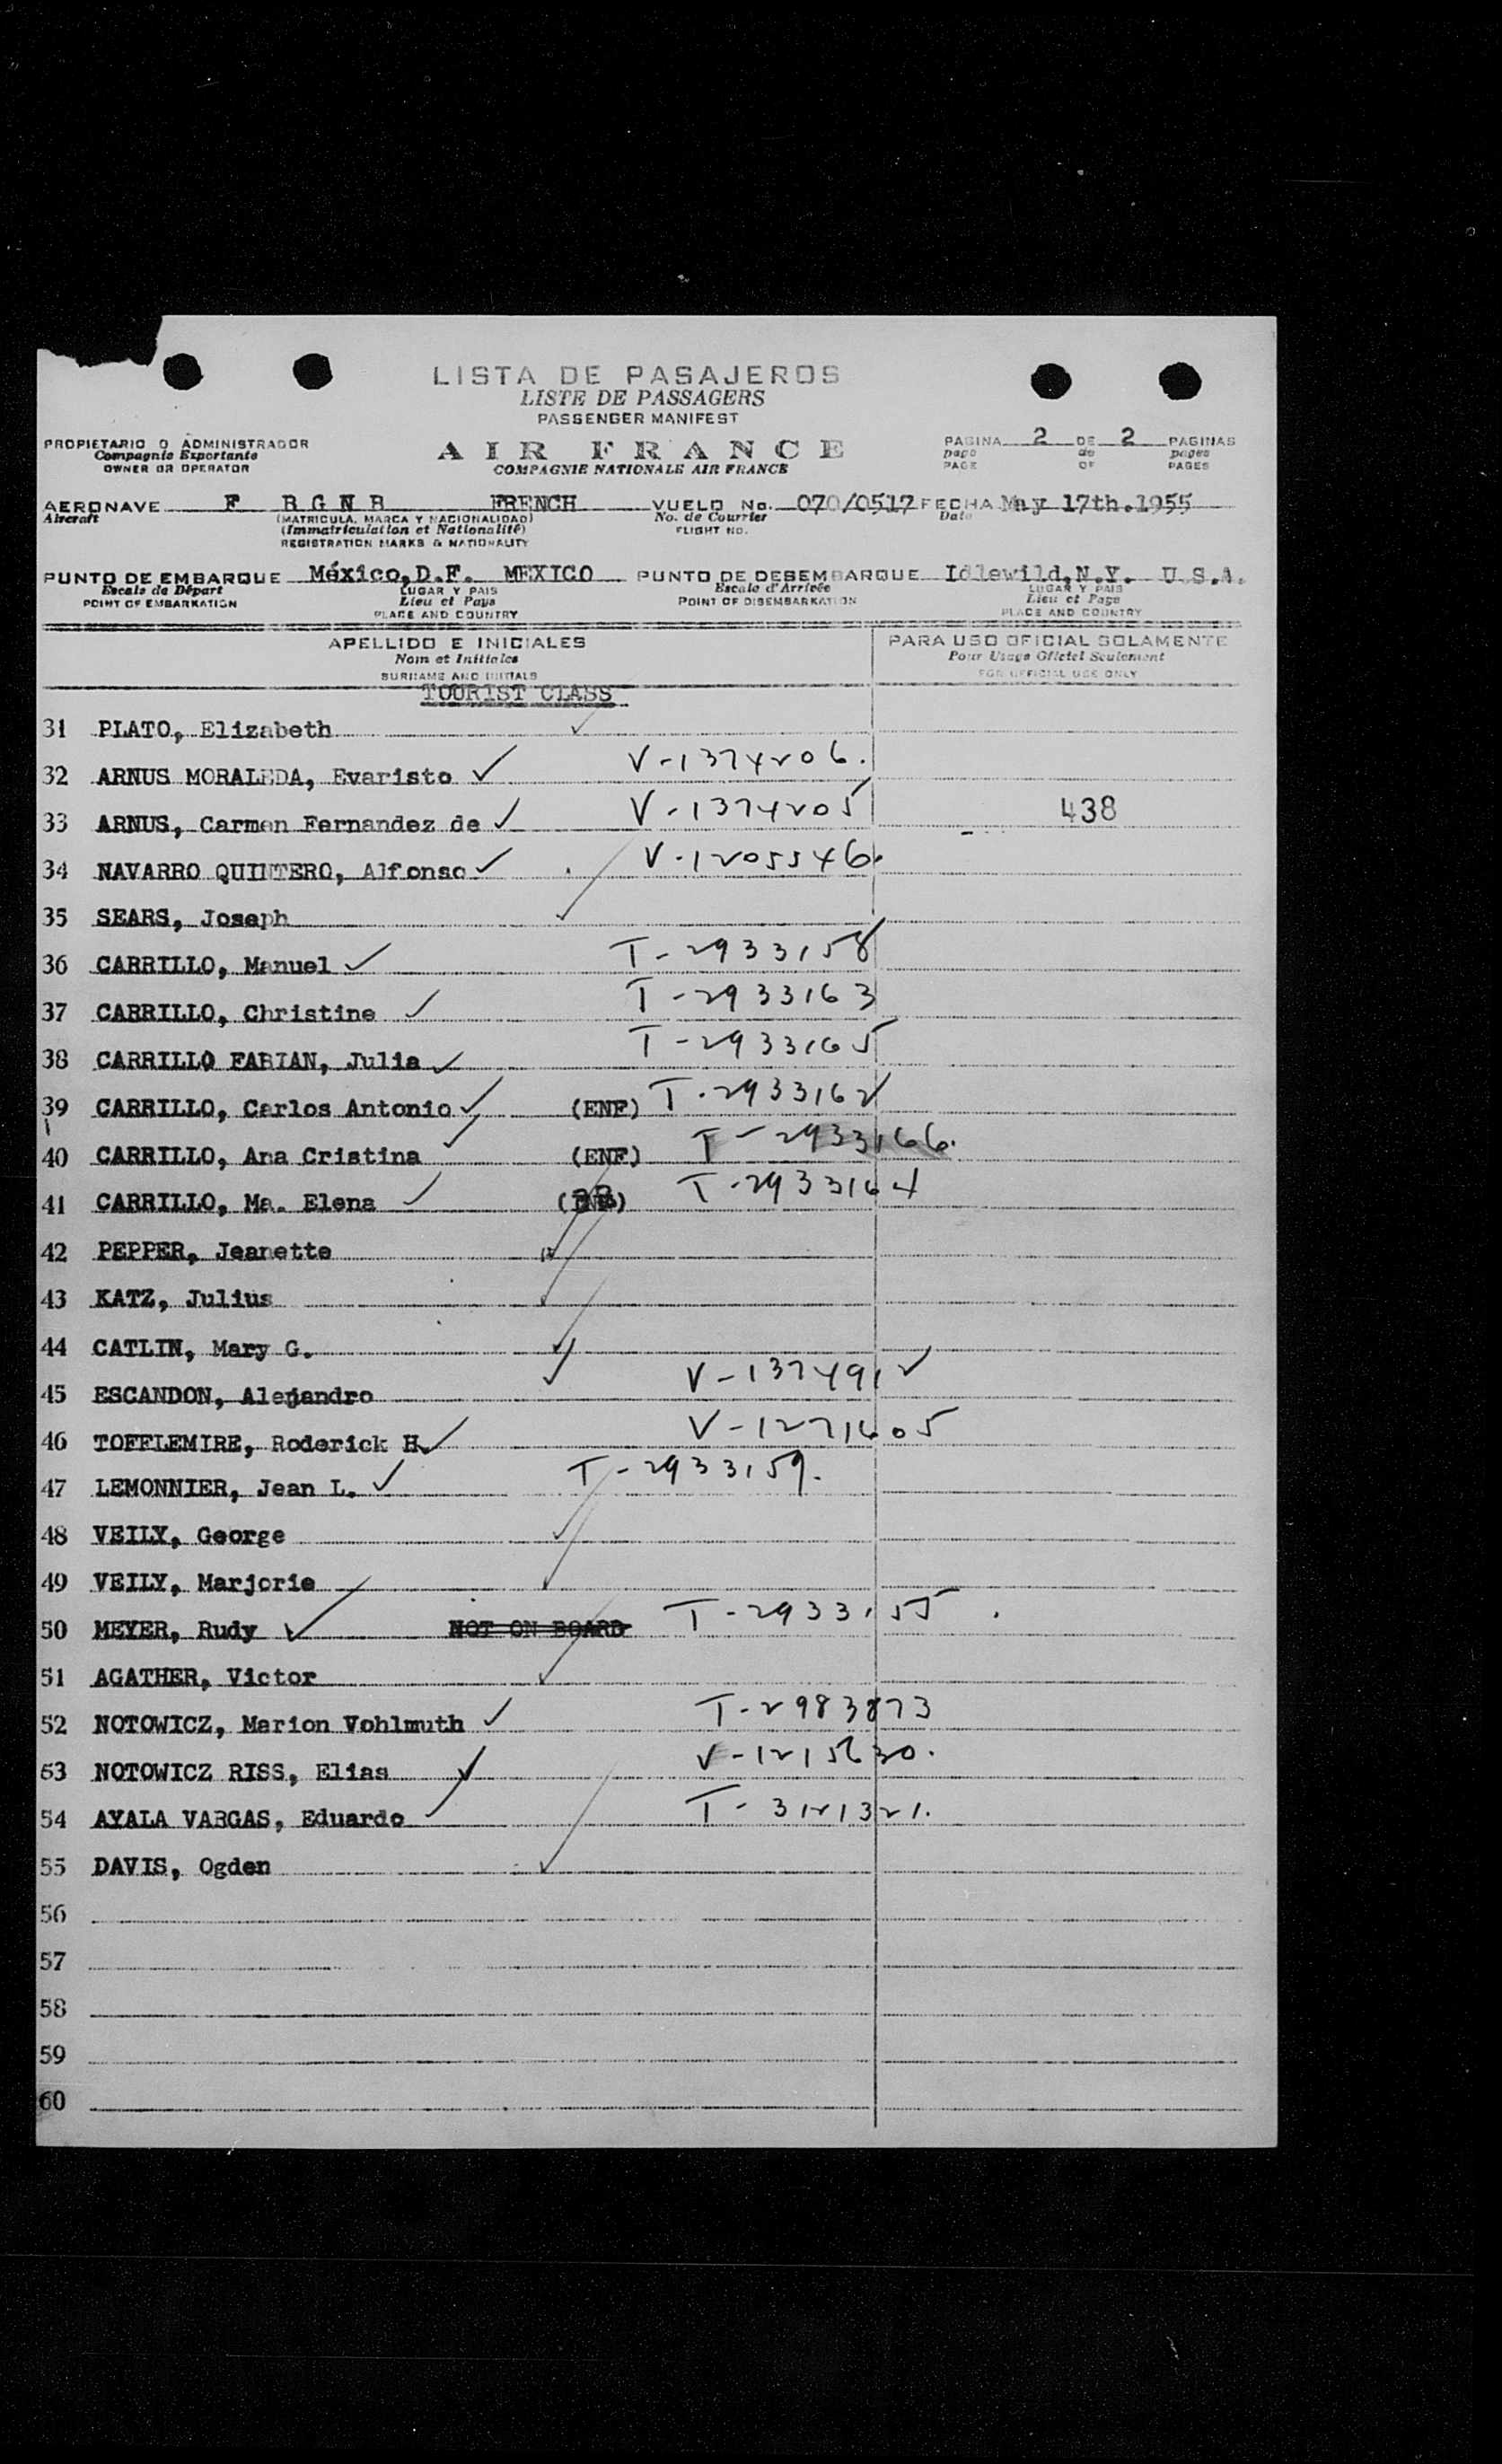 LISTA DE PASAJEROS
LISTE DE PASSAGERS
PASSENGER MANIFEST
PROPIETARIO O ADMINISTRADOR
Compagnie Exportante
OWNER OR OPERATOR
AIR FRANCE
COMPAGNIE NATIONALE AIR FRANCE
PAGINA 2 DE 2 PAGINAS
page de pages
PAGE OF PAGES
AERONAVE F BGNB FRENCH VUELO No. 070/0517 FECHA May 17th.1955
Aircraft (MATRICULA, MARCA Y NACIONALIDAD) No. de Courrier Date
(Immatriculation et Nationalité) FLIGHT NO.
REGISTRATION MARKS & NATIONALITY
PUNTO DE EMBARQUE México,D.F. MEXICO PUNTO DE DESEMBARQUE Idlewild,N.Y. U.S.A.
Escale de Départ LUGAR Y PAIS Escale d'Arrivée LUGAR Y PAIS
POINT OF EMBARKATION Lieu et Pays POINT OF DISEMBARKATION Lieu et Pays
PLACE AND COUNTRY PLACE AND COUNTRY
APELLIDO E INICIALES PARA USO OFICIAL SOLAMENTE
Nom et Initiales Pour Usage Officiel Seulement
SURNAME AND INITIALS FOR OFFICIAL USE ONLY
TOURIST CLASS
31 PLATO, Elizabeth ✓
32 ARNUS MORALEDA, Evaristo ✓ V-1374206.
33 ARNUS, Carmen Fernandez de ✓ V-1374205 438
34 NAVARRO QUINTERO, Alfonso ✓ V-1205546.
35 SEARS, Joseph ✓
36 CARRILLO, Manuel ✓ T-2933158
37 CARRILLO, Christine ✓ T-2933163
38 CARRILLO FABIAN, Julia ✓ T-2933165
39 CARRILLO, Carlos Antonio ✓ (ENF) T-2933162
40 CARRILLO, Ana Cristina ✓ (ENF) T-2933166.
41 CARRILLO, Ma. Elena ✓ T-2933164
42 PEPPER, Jeanette ✓
43 KATZ, Julius ✓
44 CATLIN, Mary G. ✓
45 ESCANDON, Alejandro ✓ V-1374912
46 TOFFLEMIRE, Roderick H. ✓ V-1271605
47 LEMONNIER, Jean L. ✓ T-2933159.
48 VEILY, George ✓
49 VEILY, Marjorie ✓
50 MEYER, Rudy ✓ NOT ON BOARD T-2933155
51 AGATHER, Victor ✓
52 NOTOWICZ, Marion Vohlmuth ✓ T-2983873
53 NOTOWICZ RISS, Elias ✓ V-1215630.
54 AYALA VARGAS, Eduardo ✓ T-3121321.
55 DAVIS, Ogden ✓
56
57
58
59
60